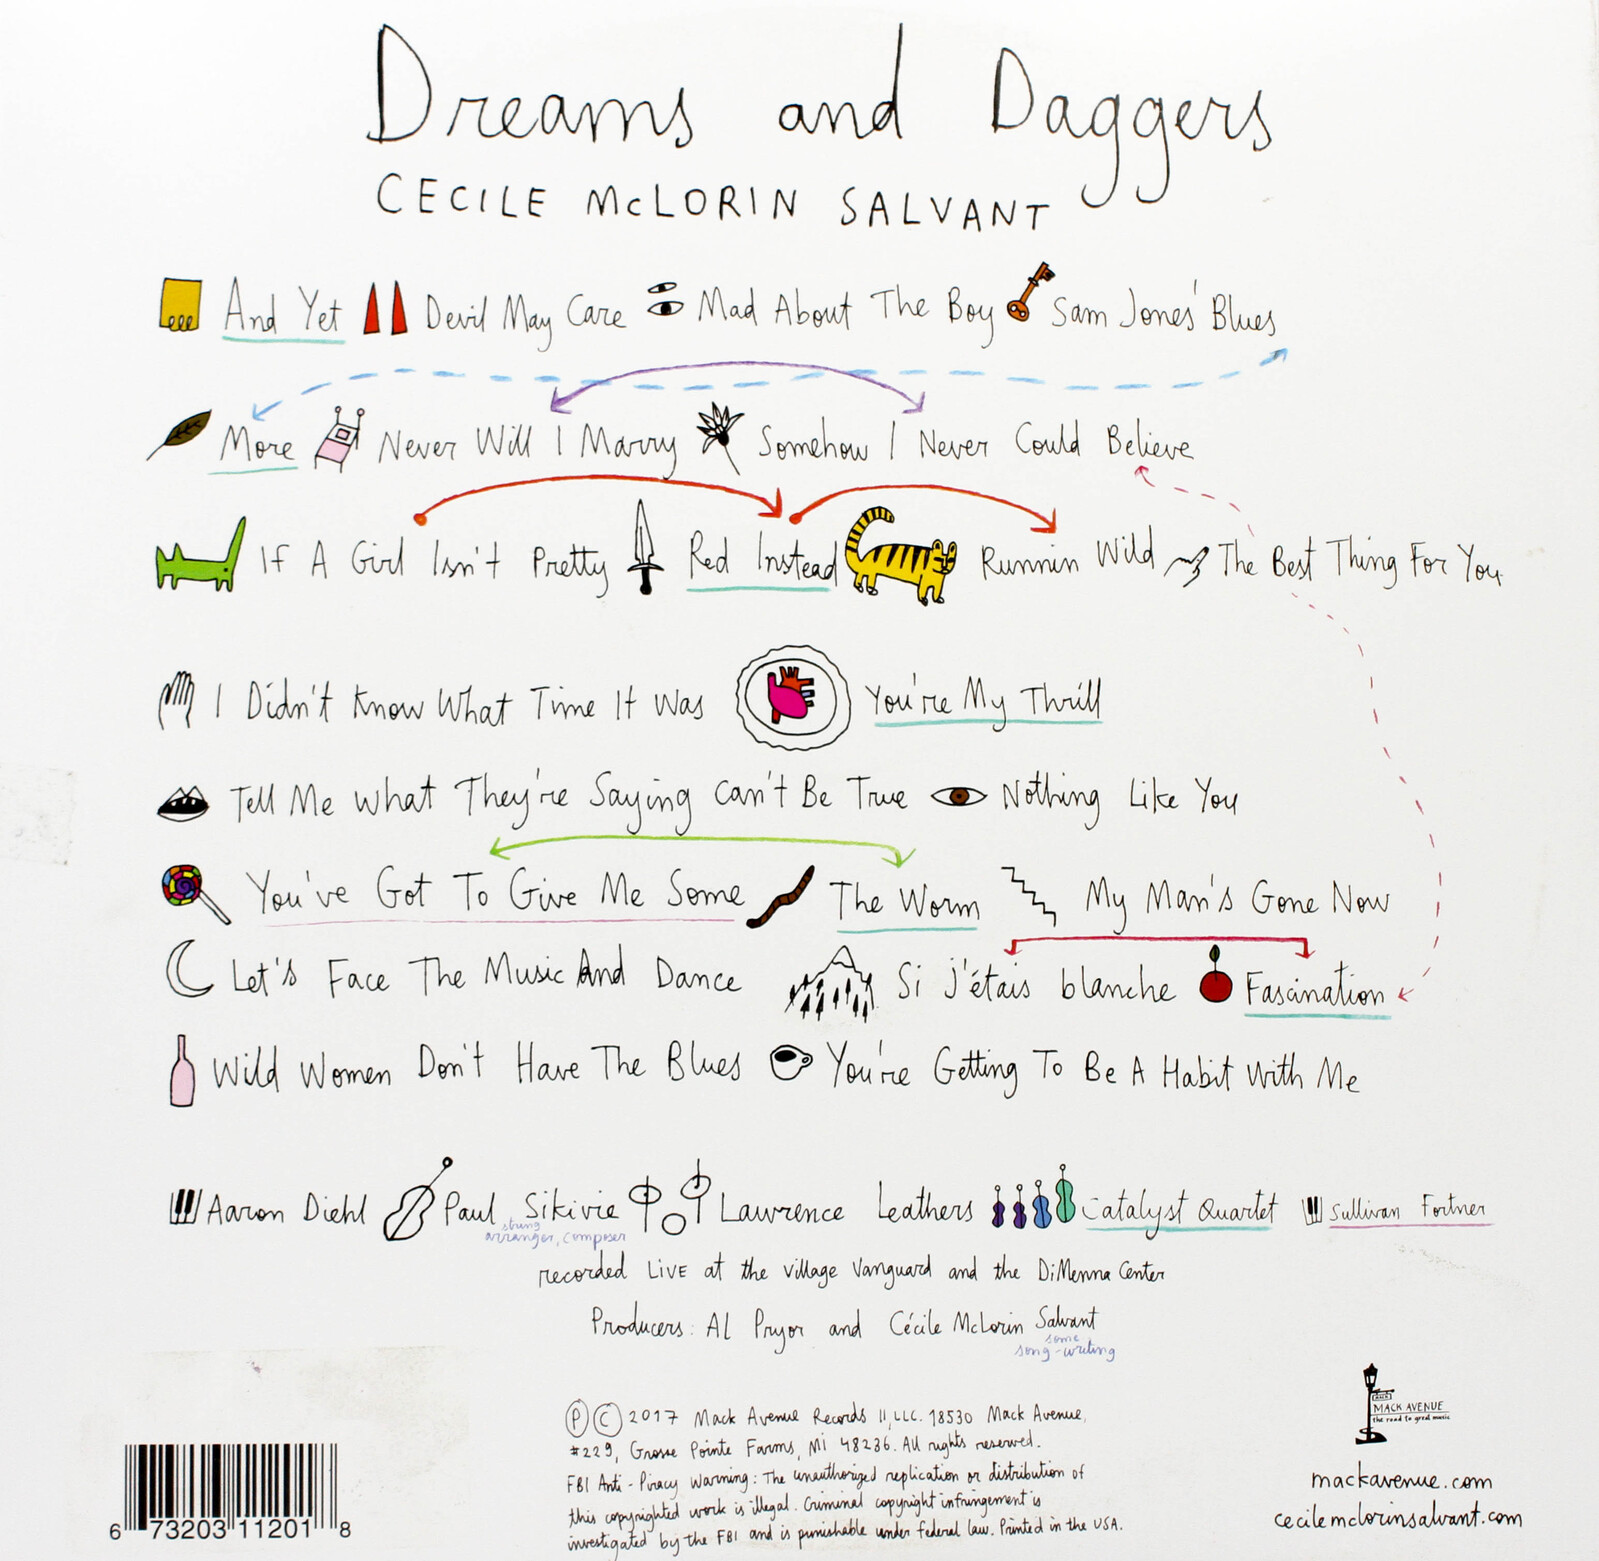 Dreams and Daggers
CECILE McLORIN SALVANT
And Yet Devil May Care Mad About The Boy Sam Jones' Blues
More Never Will I Marry Somehow I Never Could Believe
If A Girl Isn't Pretty Red Instead Runnin Wild The Best Thing For You
I Didn't Know What Time It Was You're My Thrill
Tell Me What They're Saying Can't Be True Nothing Like You
You've Got To Give Me Some The Worm My Man's Gone Now
Let's Face The Music And Dance Si j'étais blanche Fascination
Wild Women Don't Have The Blues You're Getting To Be A Habit With Me
Aaron Diehl Paul Sikivie Lawrence Leathers Catalyst Quartet Sullivan Fortner
string
arranger, composer
recorded LIVE at the Village Vanguard and the DiMenna Center
Producers: Al Pryor and Cécile McLorin Salvant
some
song-writing
Ⓟ Ⓒ 2017 Mack Avenue Records II, LLC. 18530 Mack Avenue,
#229, Grosse Pointe Farms, MI 48236. All rights reserved.
FBI Anti-Piracy Warning: The unauthorized replication or distribution of
this copyrighted work is illegal. Criminal copyright infringement is
investigated by the FBI and is punishable under federal law. Printed in the USA.
MACK
MACK AVENUE
the road to great music
mackavenue.com
cecilemclorinsalvant.com
6 73203 11201 8